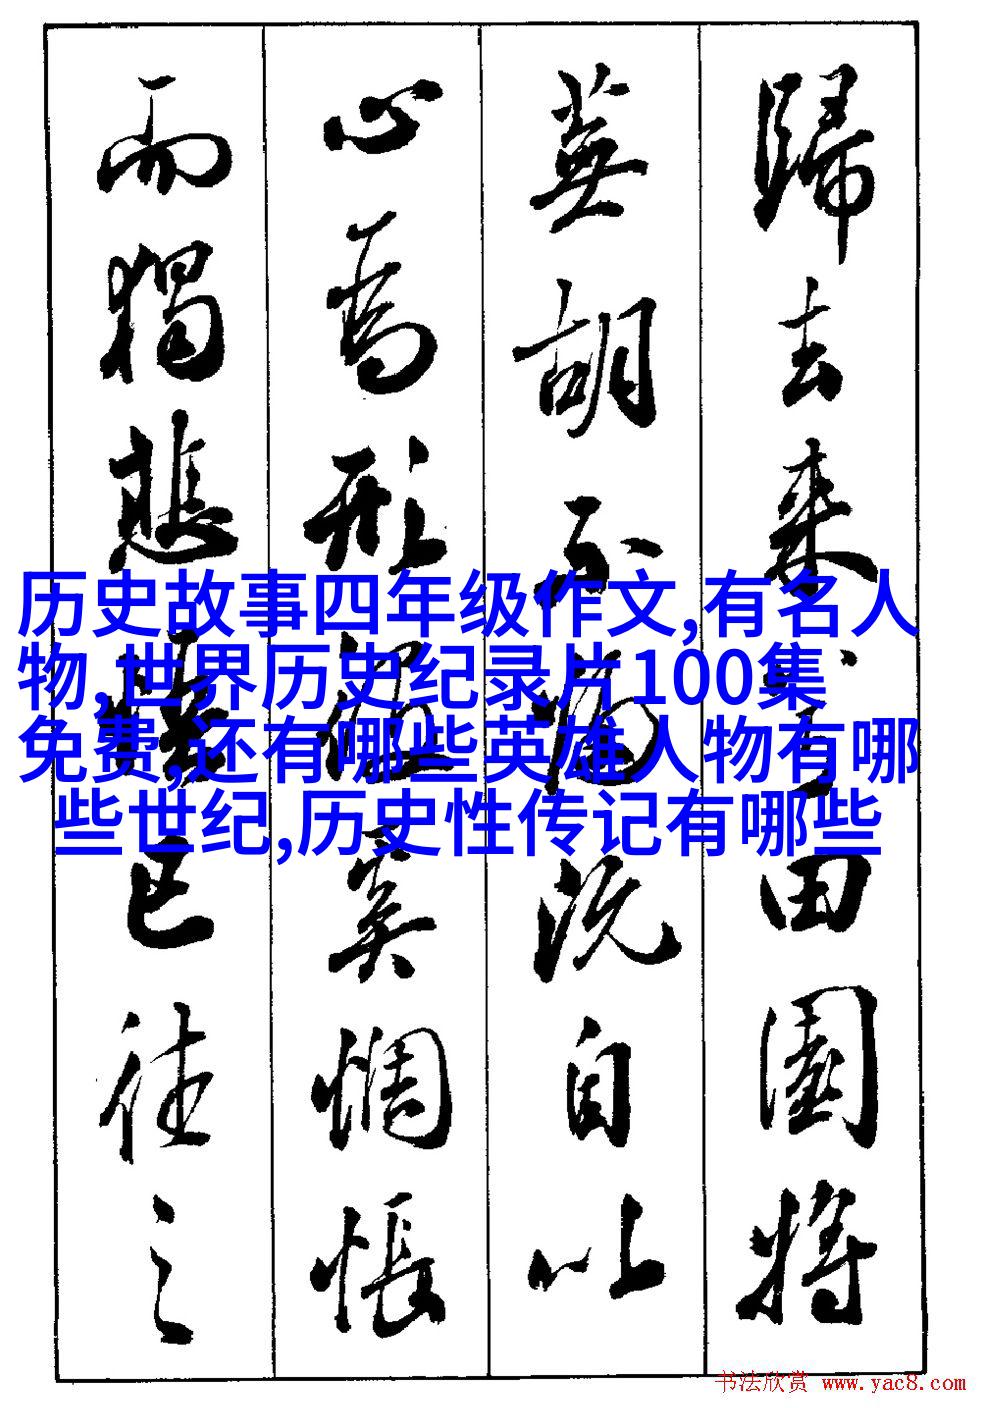 歸去来兮田園將
蕪胡不歸既自以
心為形役奚惆悵
而獨悲已往之
历史故事四年级作文,有名人
物,世界历史纪录片100集
免费,还有哪些英雄人物有哪
些世纪,历史性传记有哪些
书法欣赏 www.yac8.com